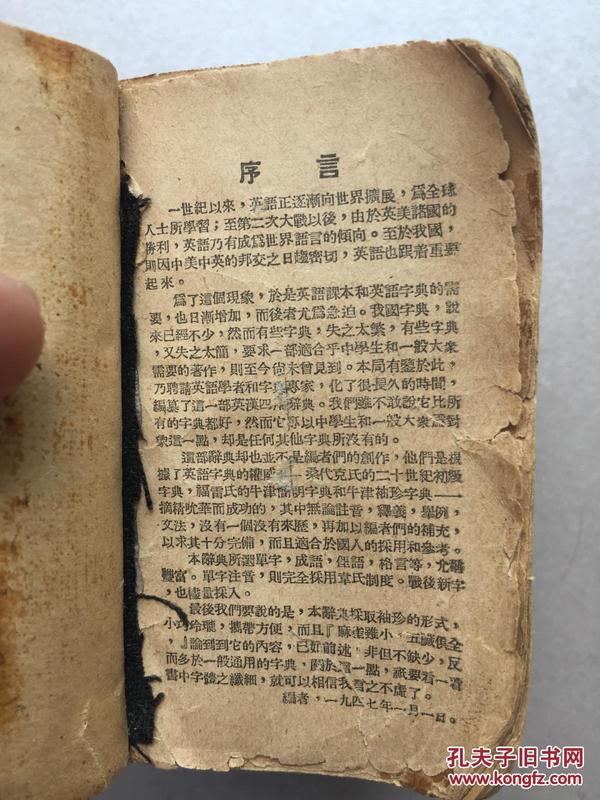 序言
一世紀以來，英語正逐漸向世界擴展，爲全球
人士所學習；至第二次大戰以後，由於英美諸國的
勝利，英語乃有成爲世界語言的傾向。至於我國，
則因中美中英的邦交之日趨密切，英語也跟着重要
起來。
爲了這個現象，於是英語課本和英語字典的需
要，也日漸增加，而後者尤爲急迫。我國字典，說
來已經不少，然而有些字典，失之太繁，有些字典
又失之太簡，要求一部適合乎中學生和一般大衆
需要的著作，則至今尙未曾見到。本局有鑒於此，
乃聘請英語學者和字典專家，化了很長久的時間，
編纂了這一部英漢四用辭典。我們雖不敢說它比所
有的字典都好，然而它專以中學生和一般大衆爲對
象這一點，却是任何其他字典所沒有的。
這部辭典却也並不是編者們的創作，他們是根
據了英語字典的權威——桑代克氏的二十世紀初級
字典，福雷氏的牛津簡明字典和牛津袖珍字典——
摘精吮華而成功的，其中無論註音，釋義，舉例，
文法，沒有一個沒有來歷，再加以編者們的補充，
以求其十分完備，而且適合於國人的採用和參考。
本辭典所選單字，成語，俚語，格言等，尤稱
豐富。單字注音，則完全採用韋氏制度。戰後新字
，也儘量採入。
最後我們要說的是，本辭典採取袖珍的形式，
小巧玲瓏，攜帶方便，而且『麻雀雖小，五臟俱全
，』論到到它的內容，已如前述，非但不缺少，反
而多於一般通用的字典，關於這一點，祇要看一看
書中字體之纖細，就可以相信我言之不虛了。
編者，一九四七年一月一日。
孔夫子旧书网
www.kongfz.com